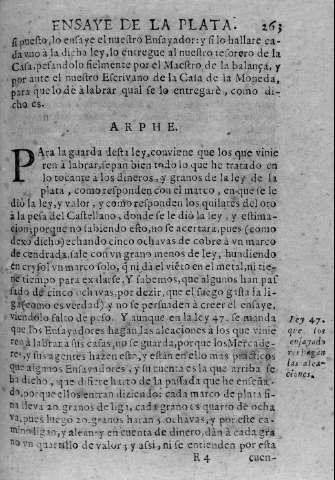 ENSAYE DE LA PLATA. 263
si puesto, lo ensaye el nuestro Ensayador: y si lo hallare ca-
da vno à la dicha ley, lo entregue al nuestro tesorero de la
Casa, pesandolo fielmente por el Maestro de la balança, y
por ante el nuestro Escrivano de la Casa de la Moneda,
para que lo dè à labrar qual se lo entregarè, como di-
cho es.
ARPHE.
PAra la guarda desta ley, conviene que los que vinie
ren à labrar, sepan bien todo lo que he tratado en
lo tocante à los dineros, y granos de la ley de la
plata, como responden con el marco, en que se le
diò la ley, y valor, y como responden los quilates del oro
à la pesa del Castellano, donde se le diò la ley, y estima-
cion; porque no sabiendo esto, no se acertarà, pues (como
dexo dicho) echando cinco ochavas de cobre à vn marco
de cendrada, sale con vn grano menos de ley, hundiendo
en crysol vn marco solo, q̃ ni dà el viẽto en el metal, ni tie-
ne tiempo para exalarse. Y sabemos, que algunos han pas
sado de cinco ochavas, por dezir, que el fuego gasta la li-
ga (como es verdad) y no se persuaden à creer el ensaye,
viendolo falto de peso. Y aunque en la ley 47. se manda
que los Ensayadores hagan las aleaciones à los que vinie
ren à labrar à sus casas, no se guarda, porque los Mercade-
res, y sus agentes hazen esto, y estàn en ello mas practicos
que algunos Ensayadores, y su cuenta es la que arriba se
ha dicho, que difiere harto de la passada que he enseña-
do, porque ellos entran diziendo: cada marco de plata fi-
na lleva 20. granos de liga, cada grano es quarto de ocha
va, pues luego 20. granos haràn 5. ochavas, y por este ca-
mino ligan, y alean; y en cuenta de dinero, dàn à cada gra
no vn quartillo de valor; y assi, ni se entienden por esta
Ley 47.
que los
ensayado
res hagan
las alea-
ciones.
R 4 cuen-